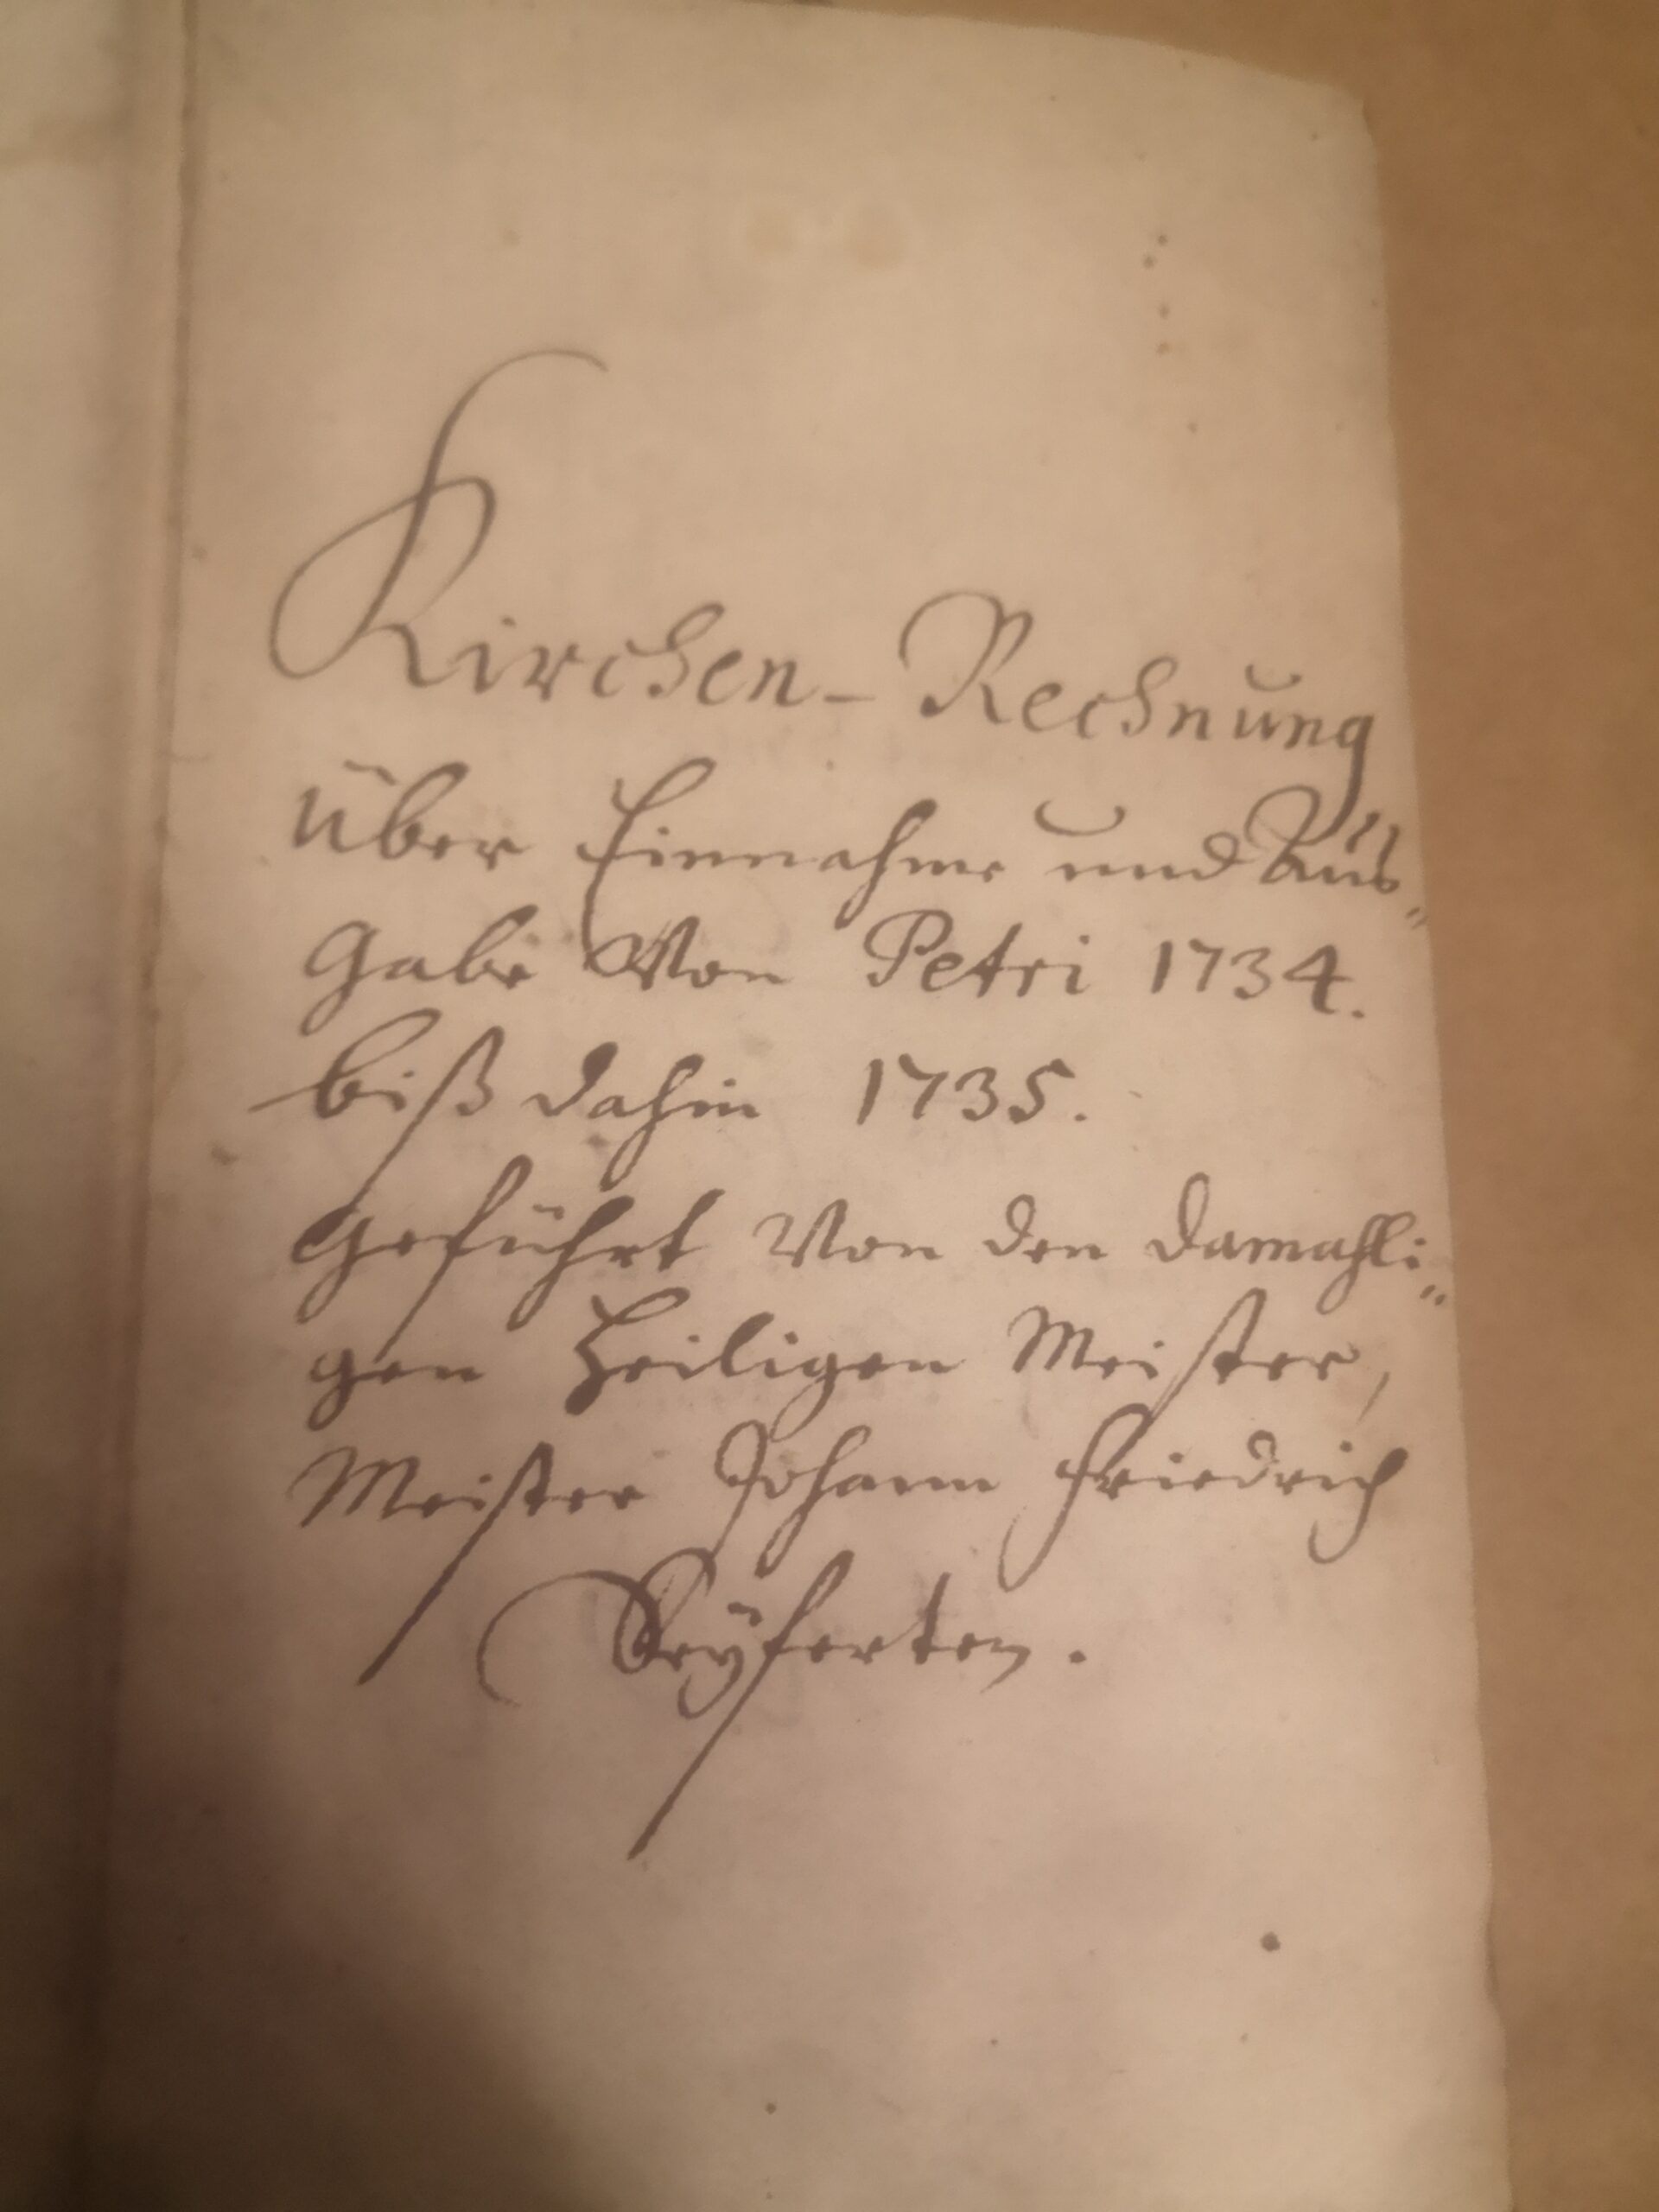 Kirchen-Rechnung
über Einnahme und Aus„
gabe Von Petri 1734.
biß dahin 1735.
geführt Von den damahli„
gen Heiligen Meister,
Meister Johann Friedrich
Seÿferten.